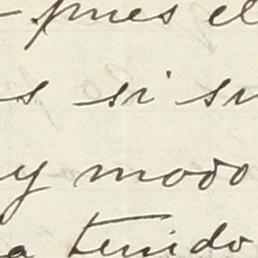 pues el
s si su
y modo
a tenido